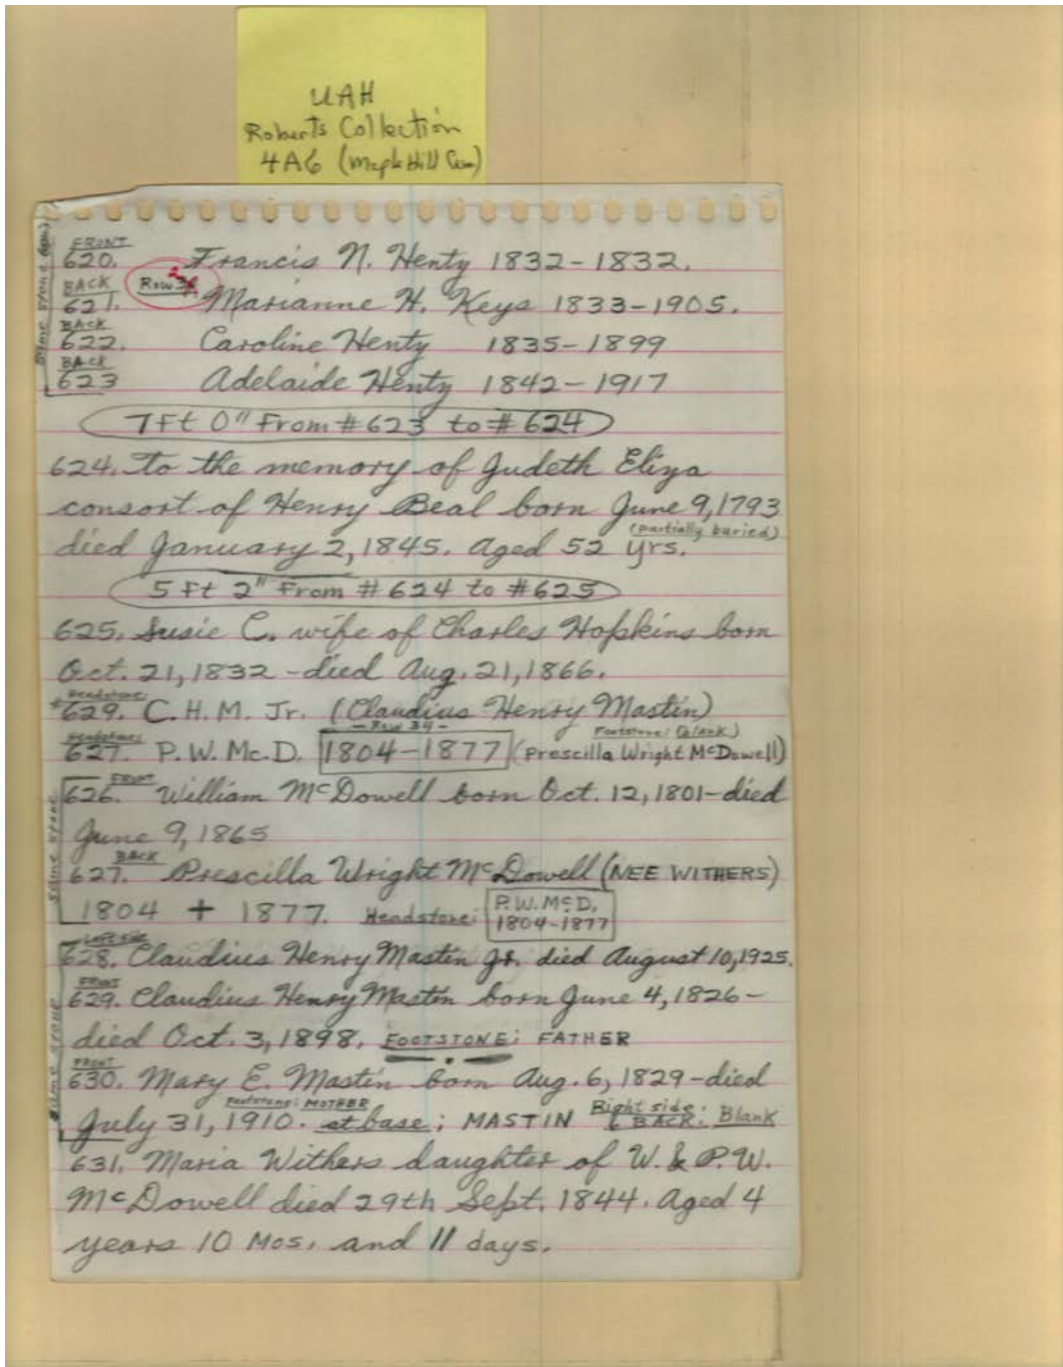 UAH
Roberts Collection
4A6 (Maple Hill Cem)
FRONT
620. Francis N. Henty 1832-1832.
BACK
621. Row Marianne H. Keys 1833-1905.
BACK
622. Caroline Henty 1835-1899
BACK
623 Adelaide Henty 1842-1917
same stone
7 Ft 0" From #623 to #624
624. To the memory of Judeth Eliza
consort of Henry Beal born June 9, 1793
(partially buried)
died January 2, 1845. Aged 52 yrs.
5 Ft 2" From #624 to #625
625. Susie C. wife of Charles Hopkins born
Oct. 21, 1832 - died Aug. 21, 1866.
Headstone:
*629. C. H. M. Jr. (Claudius Henry Mastin)
- Row 34 - Footstone: (blank)
Headstone:
627. P. W. Mc. D. 1804-1877 (Prescilla Wright McDowell)
FRONT
626. William McDowell born Oct. 12, 1801 - died
June 9, 1865
BACK
627. Prescilla Wright McDowell (NEE WITHERS)
1804 + 1877. Headstone: P.W. McD.
1804-1877
same stone
Left side
628. Claudius Henry Mastin Jr. died August 10, 1925.
FRONT
629. Claudius Henry Mastin born June 4, 1826 -
died Oct. 3, 1898. FOOTSTONE: FATHER
FRONT
630. Mary E. Mastin born Aug. 6, 1829 - died
Footstone: MOTHER
July 31, 1910. at base; MASTIN Right side:
& BACK: Blank
same stone
631. Maria Withers daughter of W. & P. W.
McDowell died 29th Sept. 1844. Aged 4
years 10 Mos. and 11 days.